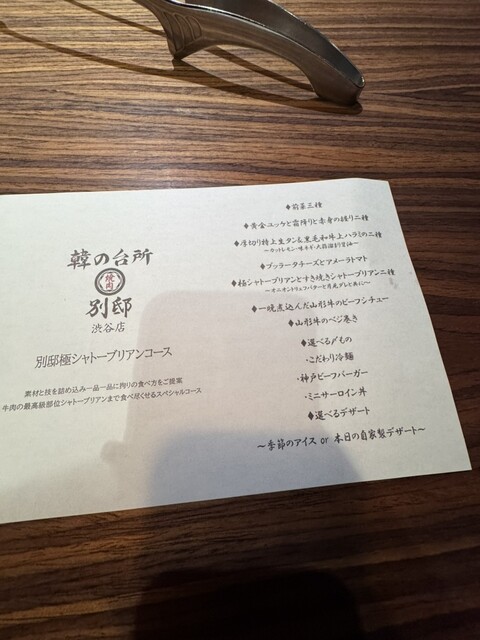 韓の台所
焼肉
別邸
渋谷店
別邸極シャトーブリアンコース
素材と技を詰め込み一品一品に拘りの食べ方をご提案
牛肉の最高級部位シャトーブリアンまで食べ尽くせるスペシャルコース
◆前菜三種
◆黄金ユッケと霜降りと赤身の握り二種
◆厚切り特上生タン&黒毛和牛上ハラミの二種
～カットレモン・味ネギ・大蒜溜まり醤油～
◆ブッラータチーズとアメーラトマト
◆極シャトーブリアンとすき焼きシャトーブリアン二種
～オニオントリュフバターと月夜グレと共に～
◆一晩煮込んだ山形牛のビーフシチュー
◆山形牛のベジ巻き
◆選べる〆もの
・こだわり冷麺
・神戸ビーフバーガー
・ミニサーロイン丼
◆選べるデザート
～季節のアイス or 本日の自家製デザート～